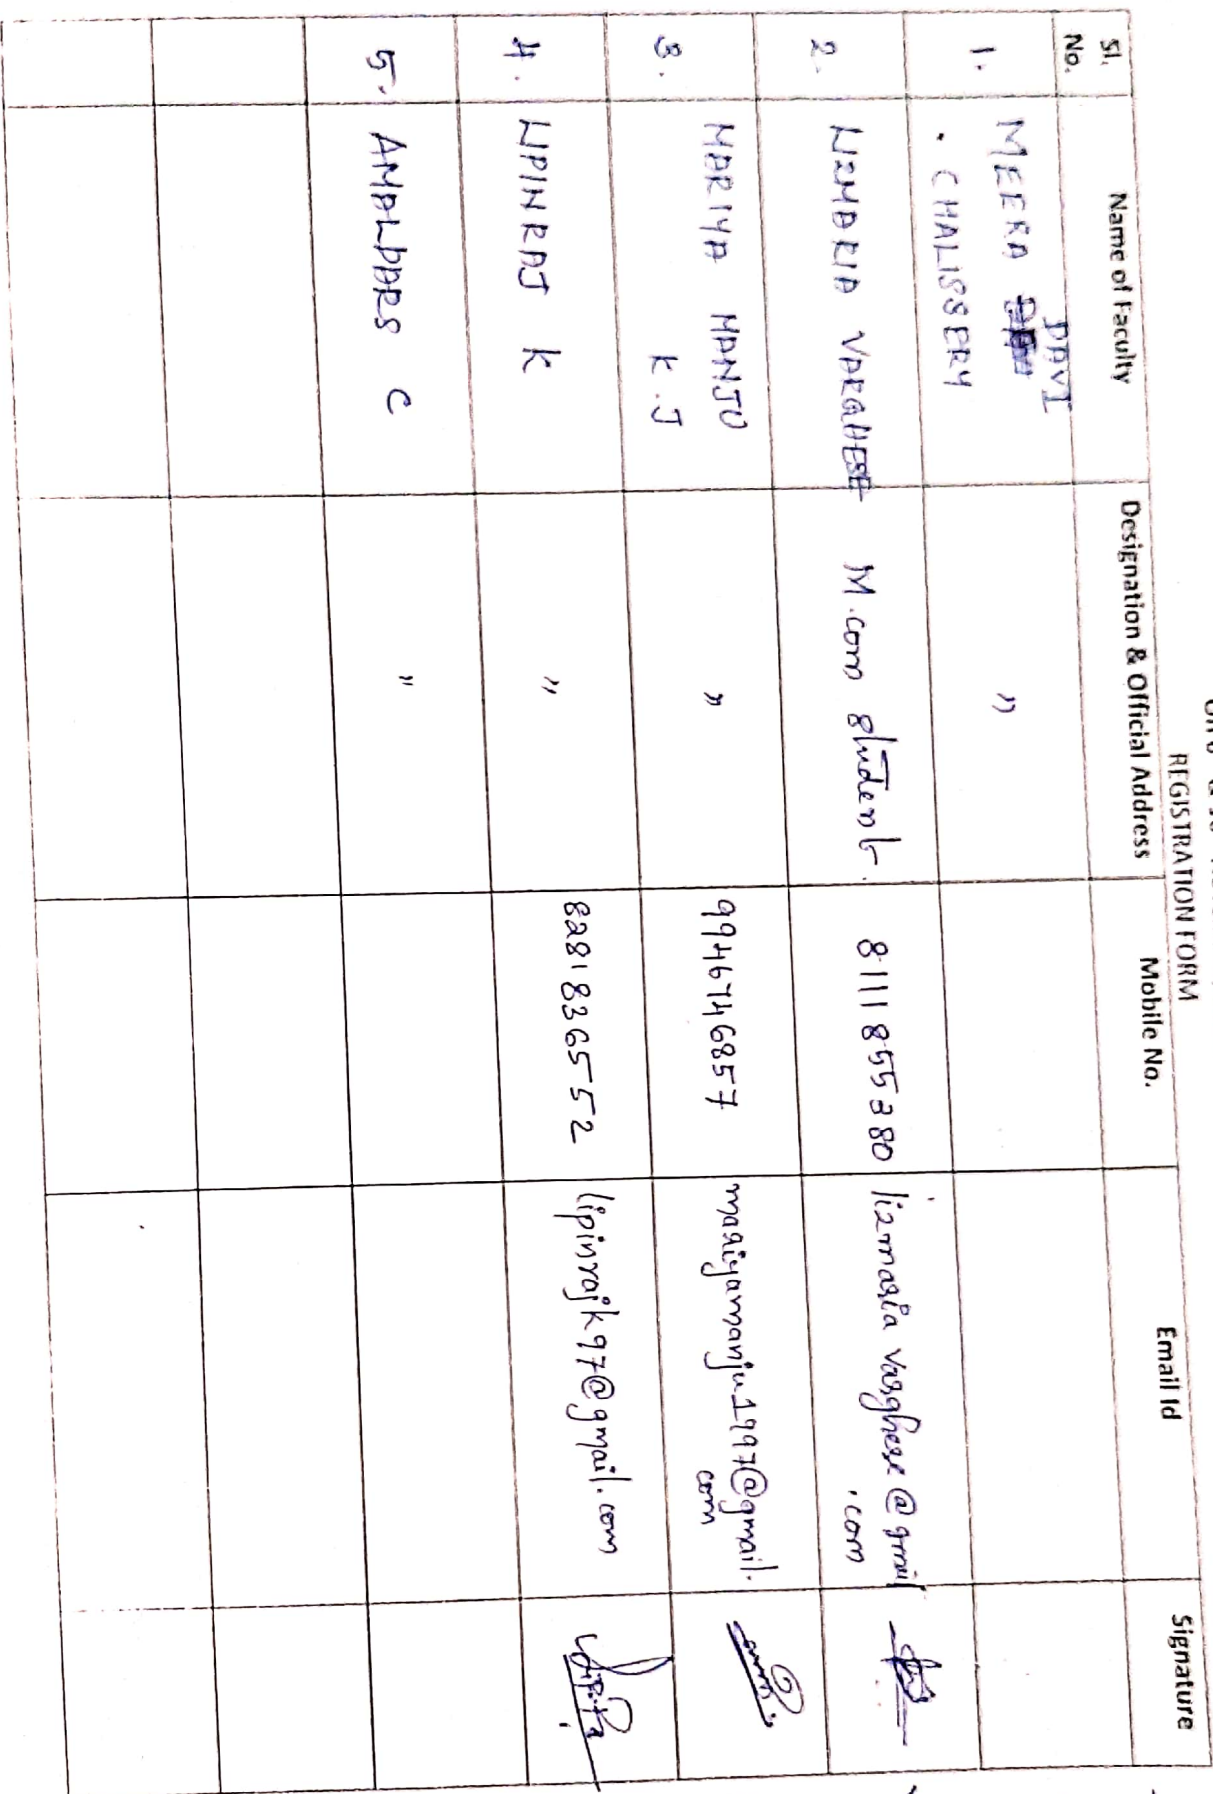 REGISTRATION FORM
Sl. No. Name of Faculty Designation & Official Address Mobile No. Email Id Signature
1. MEERA DAVI "
. CHALISSERY
2. LIZMARIA VARGHESE M.com student. 8111855380 lizmaria varghese@gmail
.com
3. MARIYA MANJU " 9946746857 mariyamanju1997@gmail.
K.J com
4. LIPINRAJ K " 8281836552 lipinrajk97@gmail.com
5. AMALDARS C "